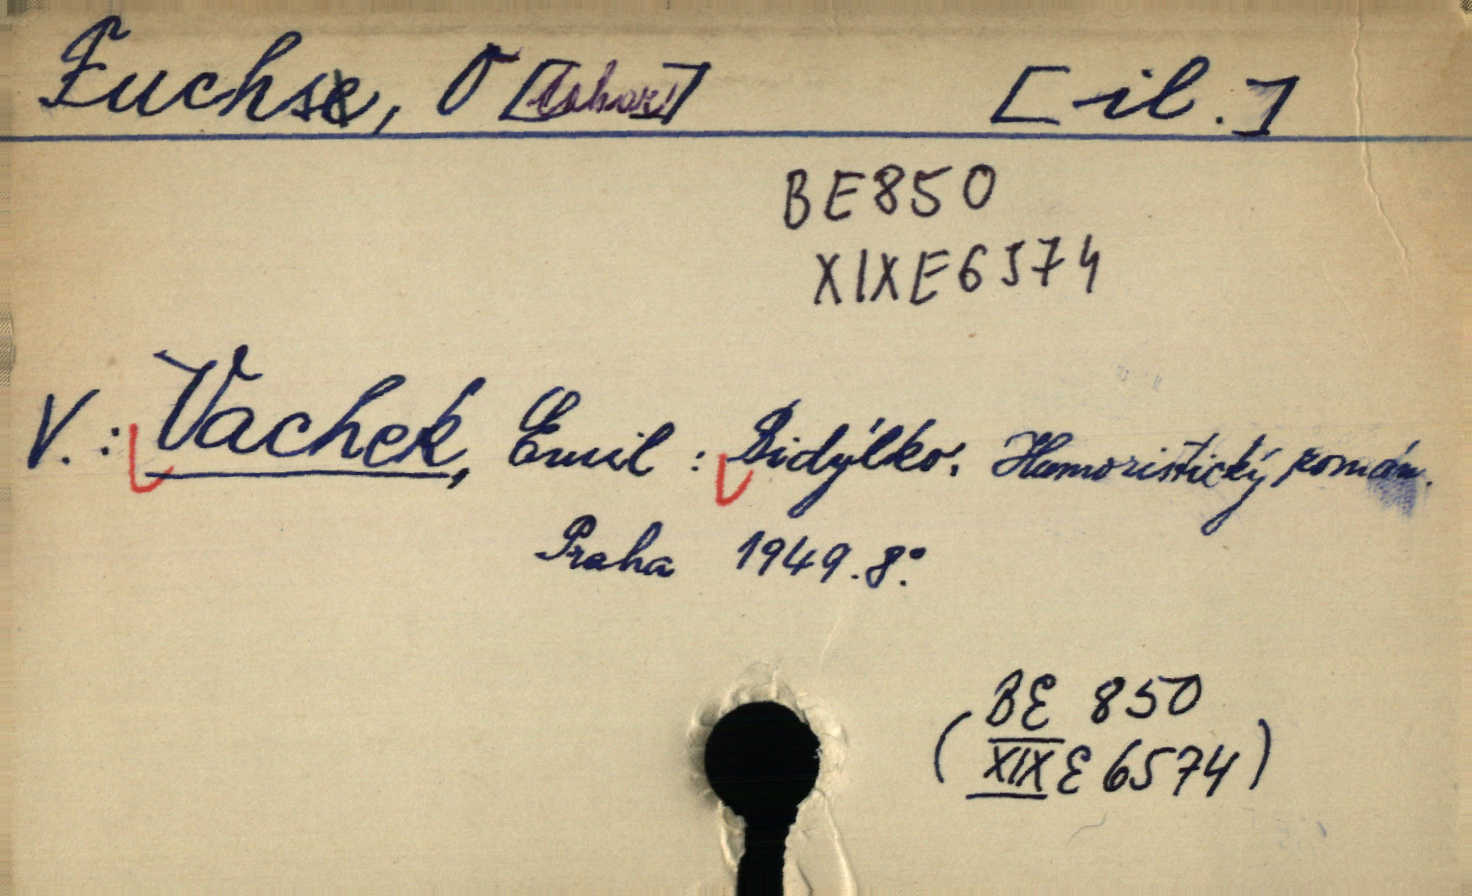 Fuchsa, O[takar] [il.]
BE850
XIXE6574
V.: Vachek, Emil: Bidýlko. Humoristický román.
Praha 1949. 8°.
(BE 850
XIX E 6574)